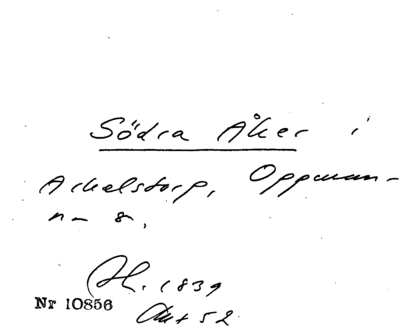 Södra Åker i
Arkelstorp, Oppman-
n- s.
H. 1839
Nr 10856
Akt 52